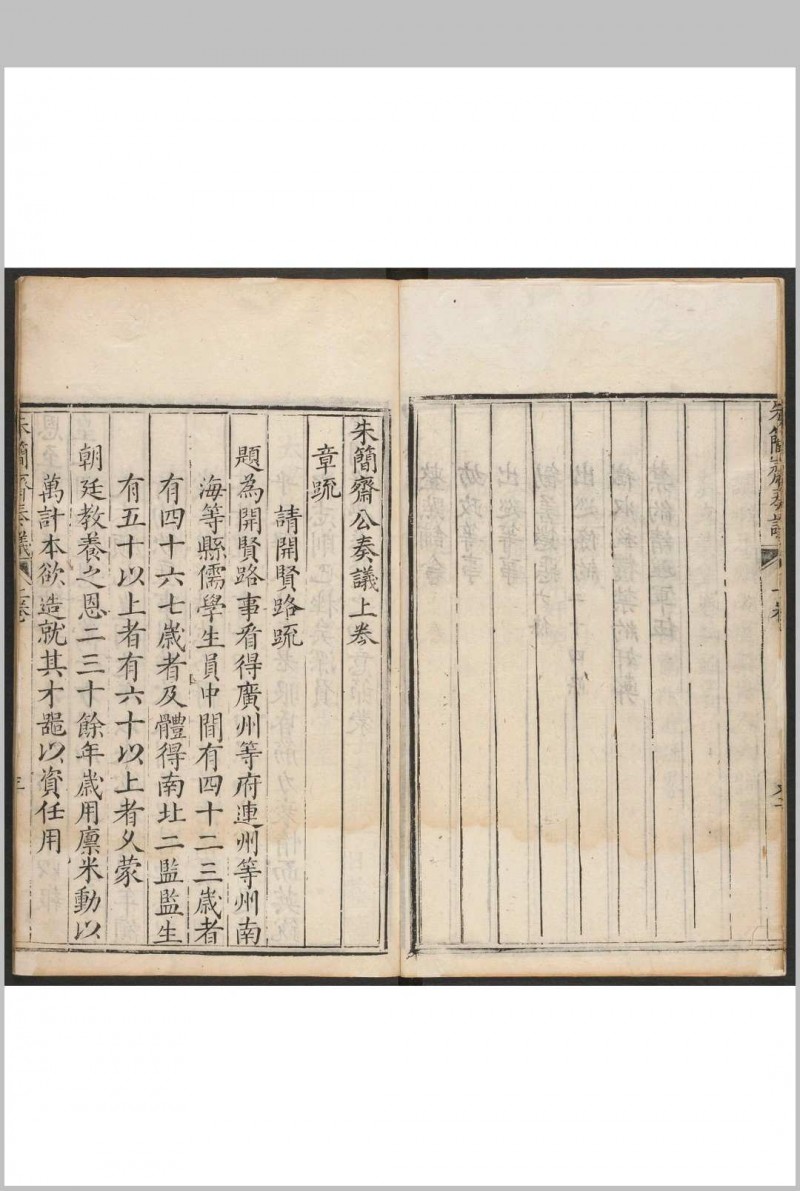 朱簡齋奏議
朱簡齋公奏議上卷
章疏
請開賢路疏
題為開賢路事看得廣州等府連州等州南
海等縣儒學生員中間有四十二三歲者
有四十六七歲者及體得南北二監監生
有五十以上者有六十以上者久蒙
朝廷教養之恩二三十餘年歲用廩米動以
萬計本欲造就其才器以資任用
朱簡齋奏議 上卷